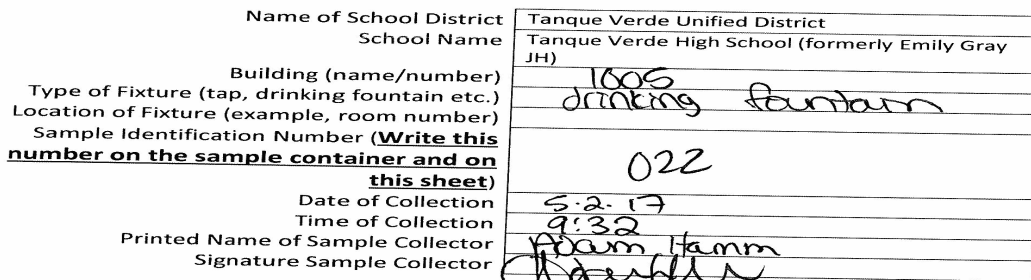 Name of School District Tanque Verde Unified District
School Name Tanque Verde High School (formerly Emily Gray
JH)
Building (name/number) 1005
Type of Fixture (tap, drinking fountain etc.) drinking fountain
Location of Fixture (example, room number)
Sample Identification Number (Write this
number on the sample container and on 022
this sheet)
Date of Collection 5.2.17
Time of Collection 9:32
Printed Name of Sample Collector Adam Hamm
Signature Sample Collector